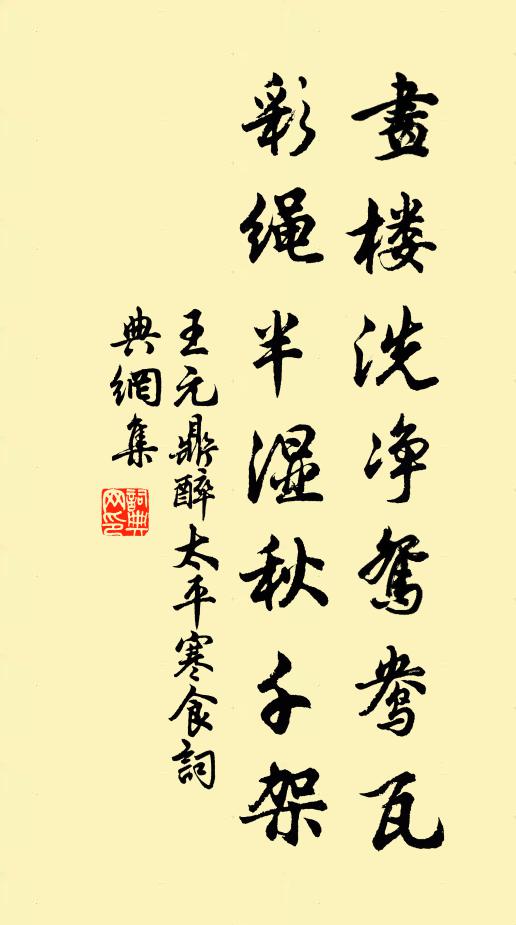 畫楼洗净鸳鸯瓦
彩绳半湿秋千架
王元鼎醉太平寒食詞
典網集
詞典
网印